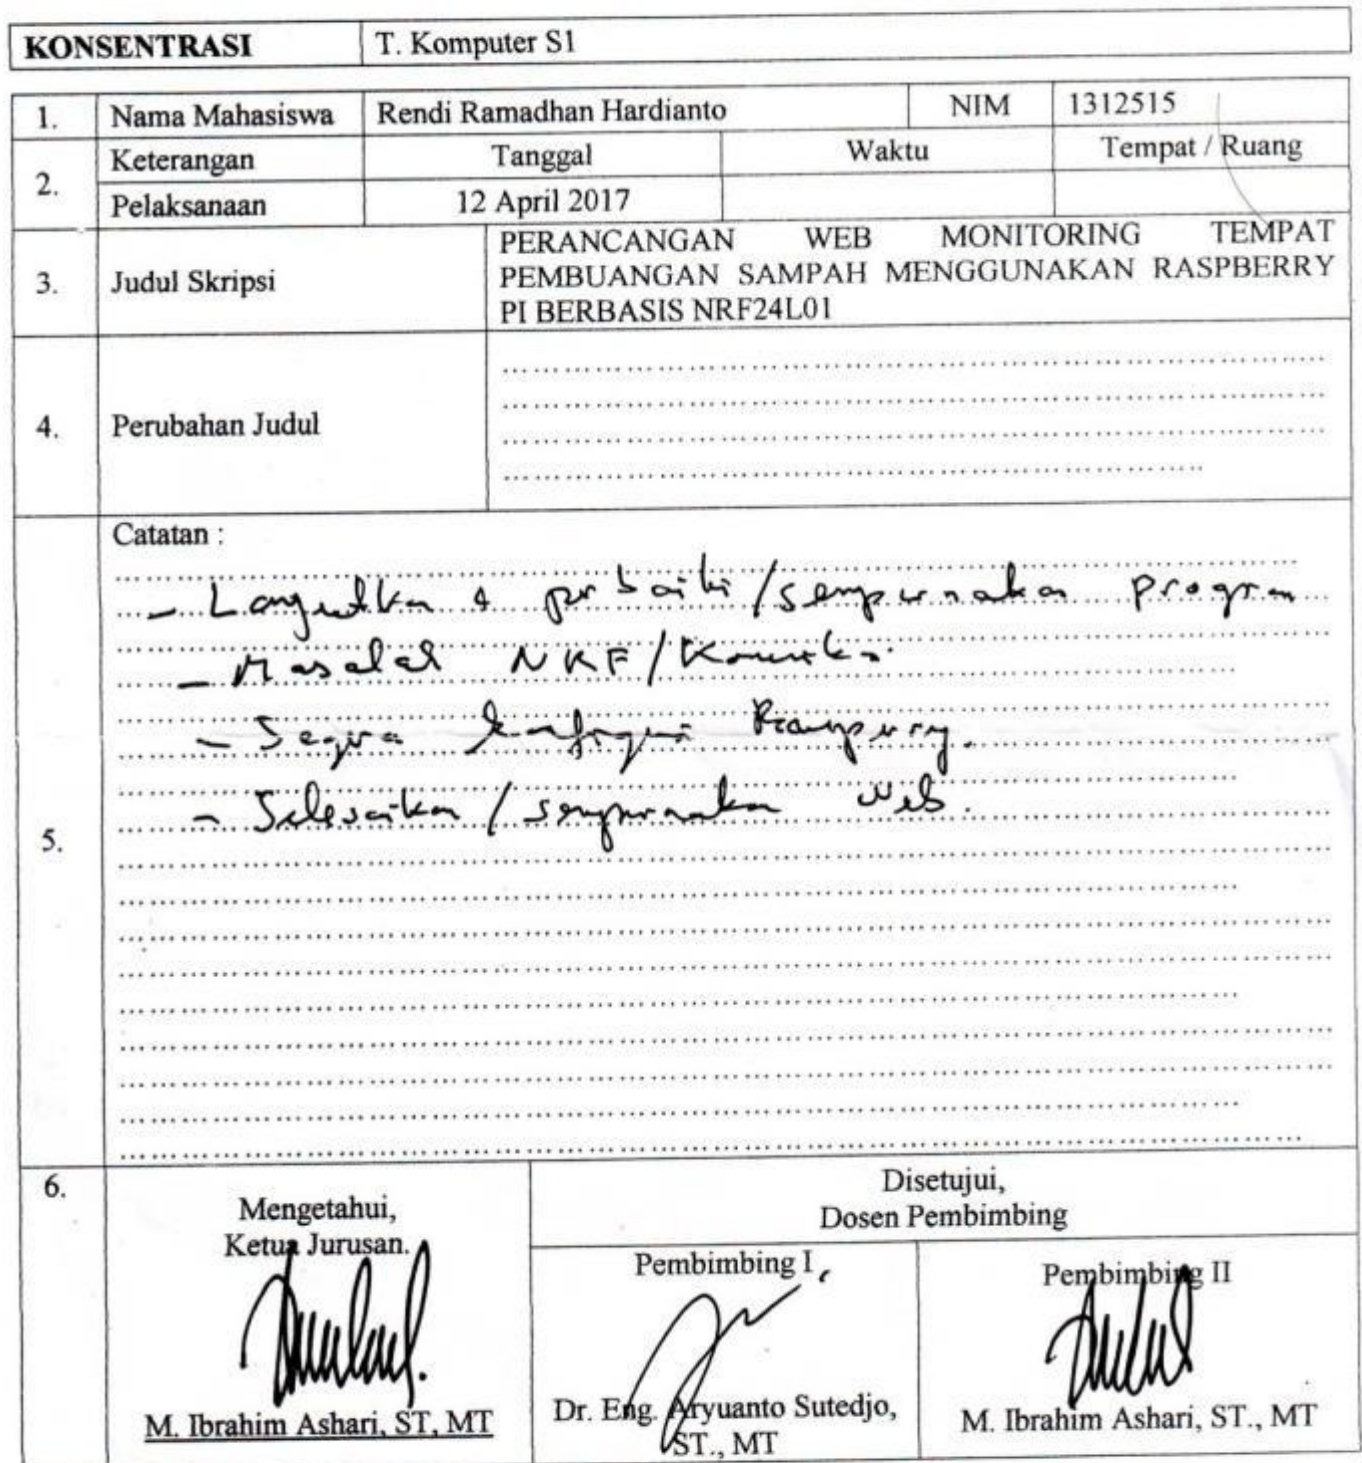 KONSENTRASI T. Komputer S1
1. Nama Mahasiswa Rendi Ramadhan Hardianto NIM 1312515
2. Keterangan Tanggal Waktu Tempat / Ruang
Pelaksanaan 12 April 2017
3. Judul Skripsi
PERANCANGAN WEB MONITORING TEMPAT
PEMBUANGAN SAMPAH MENGGUNAKAN RASPBERRY
PI BERBASIS NRF24L01
4. Perubahan Judul
5. Catatan :
- Lanjutkan & perbaiki / sempurnakan program
- Masalah NRF / Koneksi.
- Segera Raspberry.
- Selesaikan / sempurnakan web.
6. Mengetahui,
Ketua Jurusan.
M. Ibrahim Ashari, ST, MT
Disetujui,
Dosen Pembimbing
Pembimbing I
Dr. Eng. Aryuanto Sutedjo,
ST., MT
Pembimbing II
M. Ibrahim Ashari, ST., MT